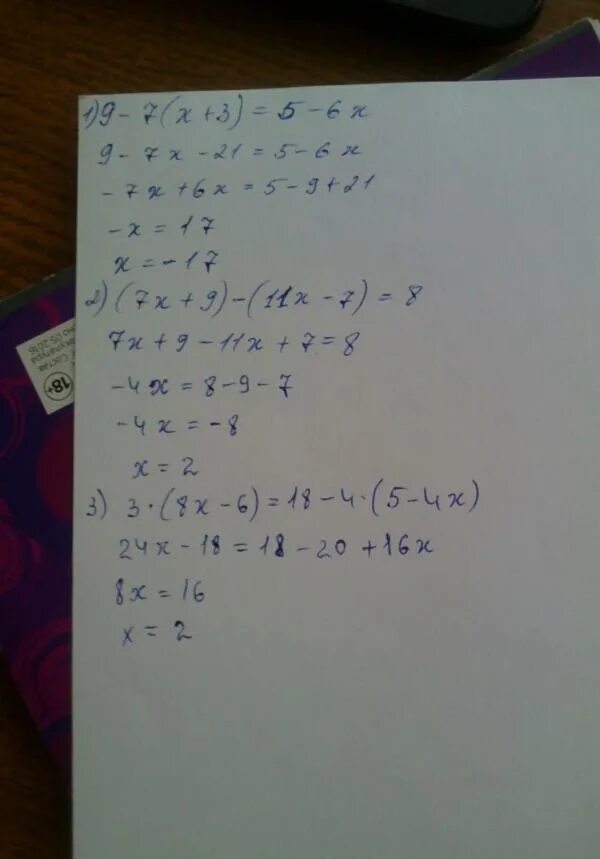 1) 9 - 7(x + 3) = 5 - 6x
9 - 7x - 21 = 5 - 6x
-7x + 6x = 5 - 9 + 21
-x = 17
x = -17
2) (7x + 9) - (11x - 7) = 8
7x + 9 - 11x + 7 = 8
-4x = 8 - 9 - 7
-4x = -8
x = 2
3) 3 · (8x - 6) = 18 - 4 · (5 - 4x)
24x - 18 = 18 - 20 + 16x
8x = 16
x = 2
18+